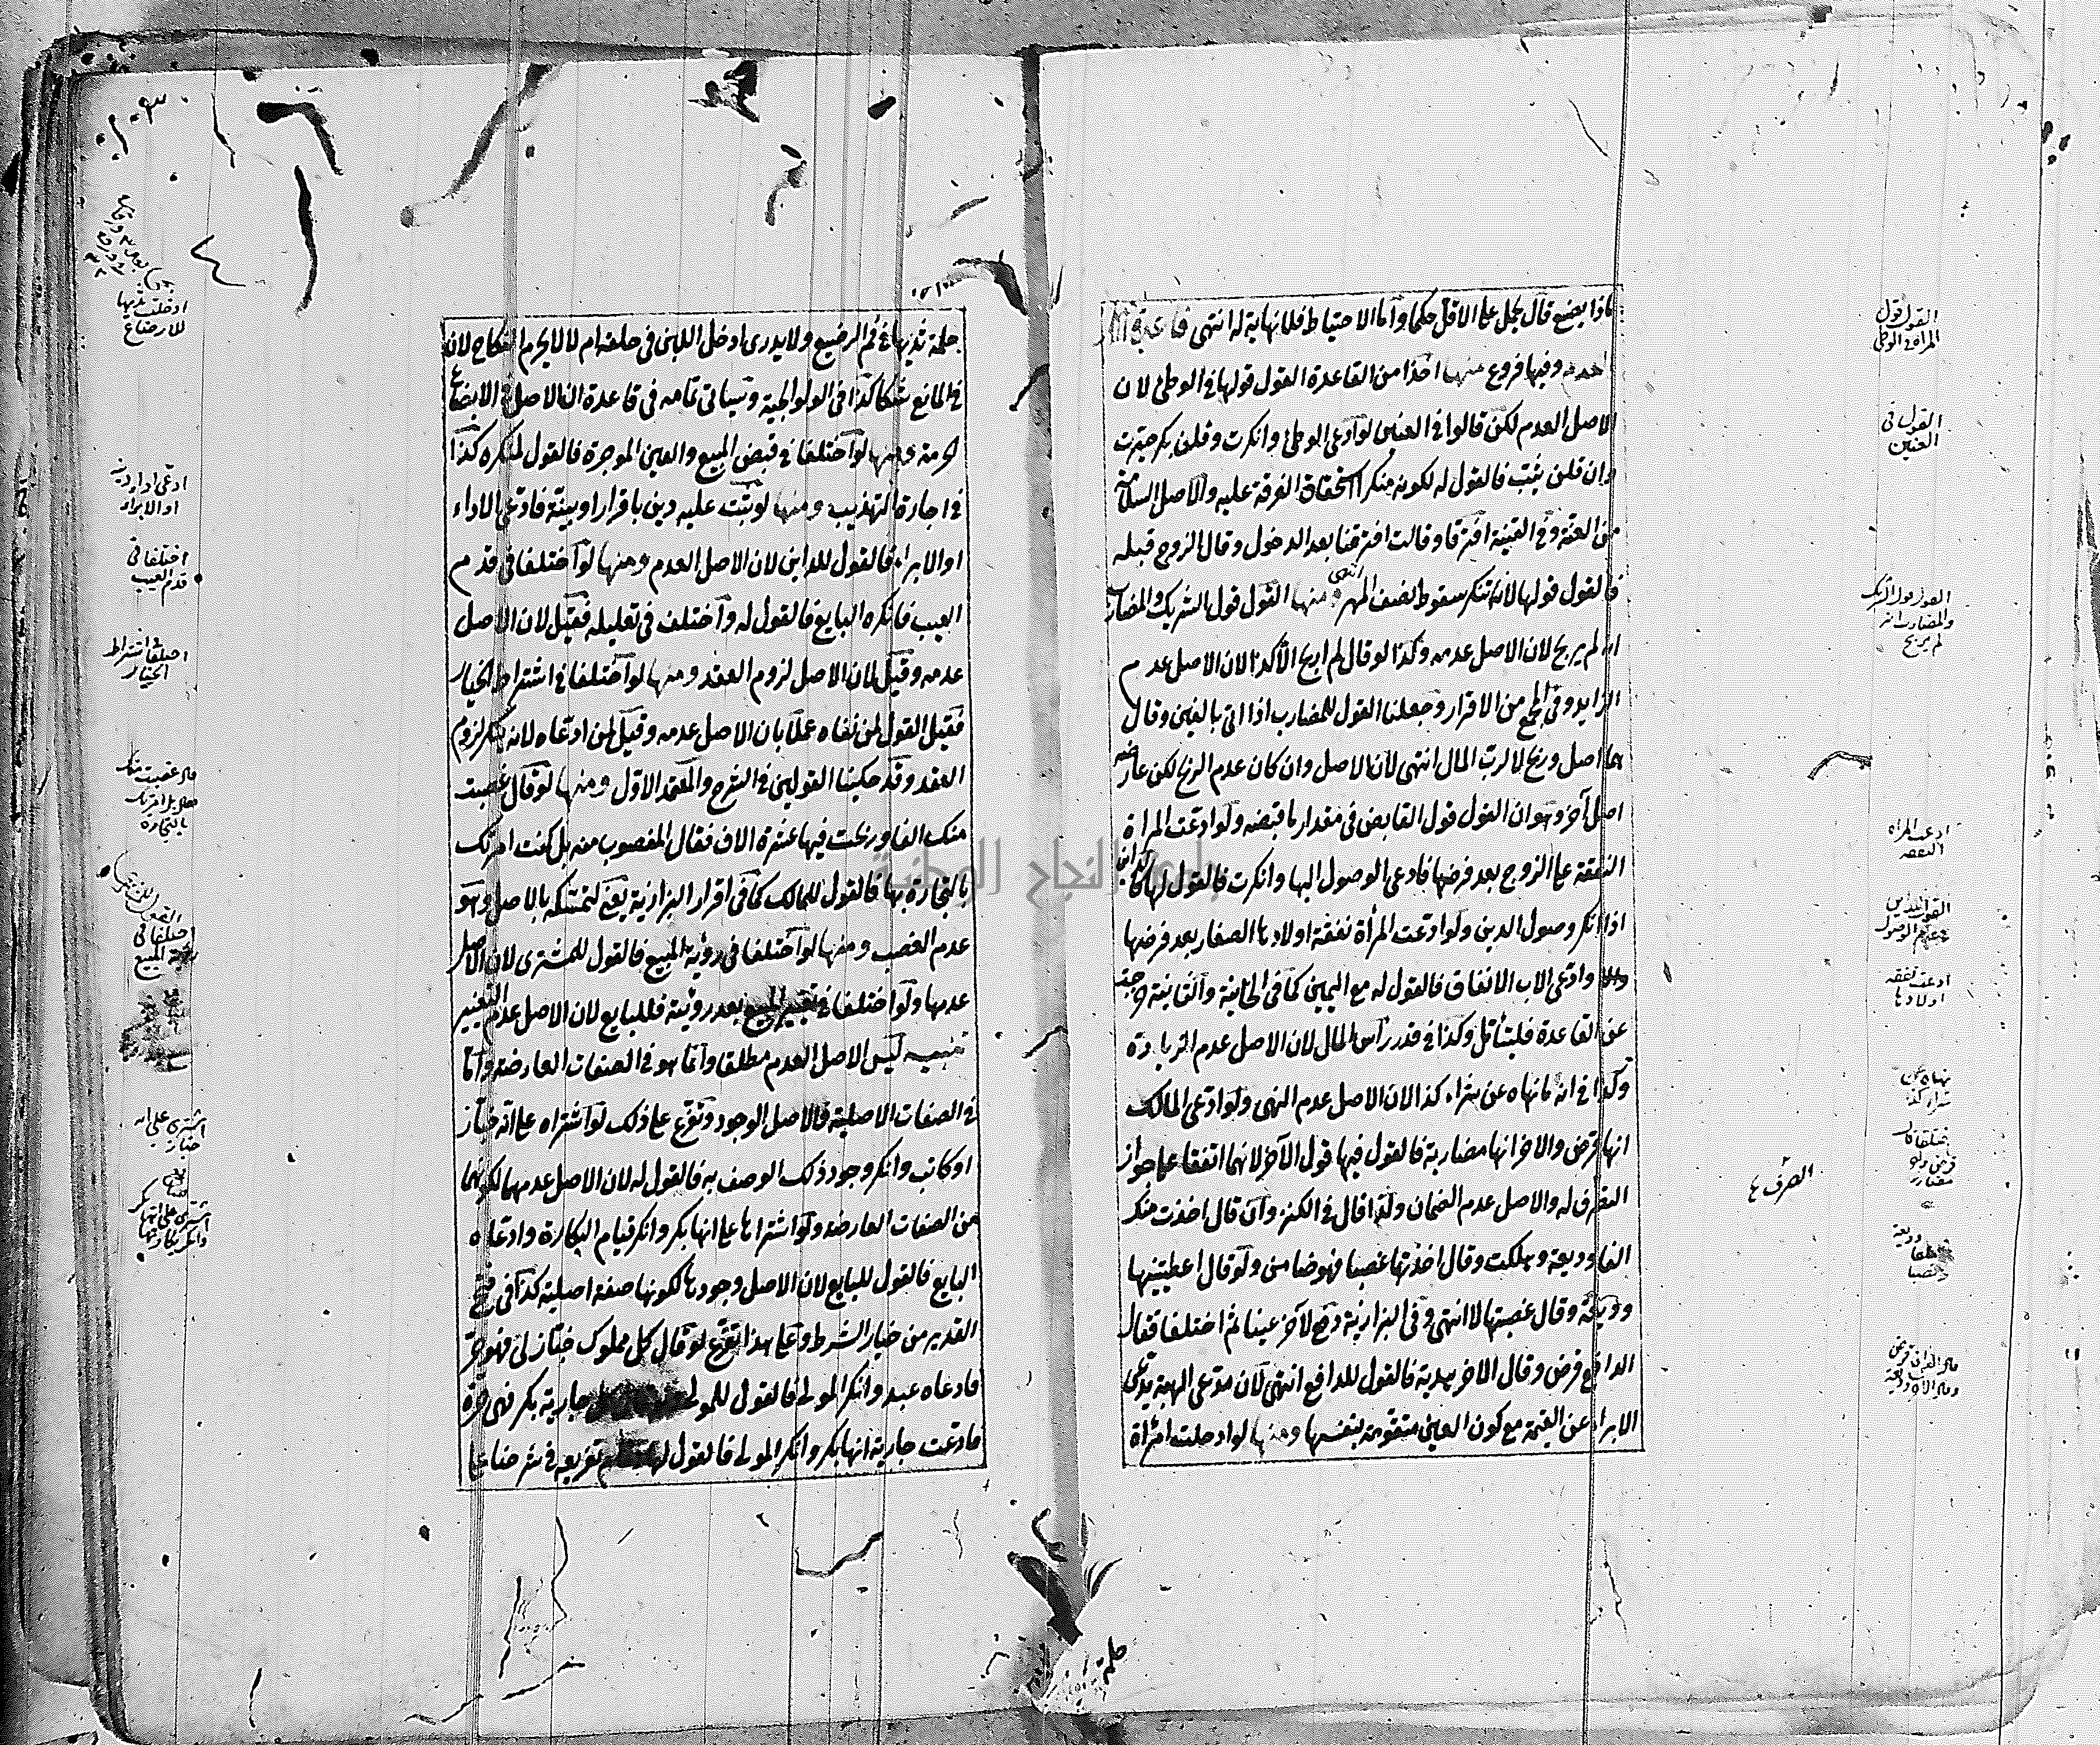 ماذا يصنع قال يحمل على الاقل حكما وأما الاحتياط فلا نهاية له انتهى قاعدة الاصل
العدم وفيها فروع منها اخذا من القاعدة القول قولها في الوطئ لان
الاصل العدم لكن قالوا في العنين لو ادعى الوطئ وانكرت وقلن بكر خيرت
وان قلن ثيب فالقول له لكونه منكرا استحقاق الفرقة عليه والاصل السلامة
من العنة وفي القنية افترقا وقالت افترقنا بعد الدخول وقال الزوج قبله
فالقول قولها لانها تنكر سقوط نصف المهر انتهى ومنها القول قول الشريك والمضارب
انه لم يربح لان الاصل عدمه وكذا لو قال لم اربح الا كذا لان الاصل عدم
الزايد وفي المجمع من الاقرار وجعلنا القول للمضارب اذا اتى بالفين وقال
هما اصل وربح لا لرب المال انتهى لان الاصل وان كان عدم الربح لكن عارضه
اصل آخر وهو ان القول قول القابض في مقدار ما قبضه ولو ادعت المرأة
النفقة على الزوج بعد فرضها فادعى الوصول اليها وانكرت فالقول لها كالداين
اذا انكر وصول الدين ولو ادعت المرأة نفقة اولادها الصغار بعد فرضها
وادعى الاب الانفاق فالقول له مع اليمين كما في الخانية والثانية خرجت
عن القاعدة فليتأمل وكذا في قدر رأس المال لان الاصل عدم الزيادة
وكذا في انه ما نهاه عن شراء كذا لان الاصل عدم النهي ولو ادعى المالك
انها قرض والاخر انها مضاربة فالقول فيها قول الآخر لانهما اتفقا على جواز
التصرف له والاصل عدم الضمان ولذا قال في الكنز وان قال اخذت منك
الفا وديعة وهلكت وقال اخذتها غصبا فهو ضامن ولو قال اعطيتنيها
وديعة وقال غصبتها لا انتهى وفي البزازية دفع لآخر عينا ثم اختلفا فقال
الدافع قرض وقال الاخر هدية فالقول للدافع انتهى لان مدعي الهبة يدعي
الابراء عن القيمة مع كون العين متقومة بنفسها ومنها لو ادخلت امرأة
القول قول
المرأة في الوطئ
القول في
العنين
القول قول الشريك
والمضارب انه
لم يربح
ادعت المرأة
النفقة
ادعت نفقة
اولادها
نهاه عن
شراء كذا
التصرف
حلمة
حلمة ثديها في فم الرضيع ولا يدرى ادخل اللبن في حلقه ام لا لا يحرم النكاح لان
في المانع شكا كذا في الولوالجية وسياتي تمامه في قاعدة ان الاصل في الابضاع
الحرمة ومنها لو اختلفا في قبض المبيع والعين الموجرة فالقول لمنكره كذا
في اجارة التهذيب ومنها لو ثبت عليه دين باقرار او بينة فادعى الاداء
او الابراء فالقول للداين لان الاصل العدم ومنها لو اختلفا في قدم
العيب فانكره البايع فالقول له واختلف في تعليله فقيل لان الاصل
عدمه وقيل لان الاصل لزوم العقد ومنها لو اختلفا في اشتراط الخيار
فقيل القول لمن نفاه عملا بان الاصل عدمه وقيل لمن ادعاه لانه ينكر لزوم
العقد وقد حكينا القولين في الشرح والمعتمد الاول ومنها لو قال غصبت
منك الفا وربحت فيها عشرة الاف فقال المغصوب منه بل كنت امرتك
بالتجارة بها فالقول للمالك كما في اقرار البزازية يعني لتمسكه بالاصل وهو
عدم الغصب ومنها لو اختلفا في رؤية المبيع فالقول للمشتري لان الاصل
عدمها ولو اختلفا في تغيير المبيع بعد رؤيته فللبايع لان الاصل عدم التغيير
تنبيه ليس الاصل العدم مطلقا وانما هو في الصفات العارضة واما
في الصفات الاصلية فالاصل الوجود وتفرع على ذلك لو اشتراه على انه خباز
او كاتب وانكر وجود ذلك الوصف به فالقول له لان الاصل عدمهما لكونهما
من الصفات العارضة ولو اشتراها على انها بكر وانكر قيام البكارة وادعاه
البايع فالقول للبايع لان الاصل وجودها لكونها صفة اصلية كذا في فتح
القدير من خيار الشرط وعلى هذا تفرع لو قال كل مملوك خباز لي فهو حر
فادعاه عبد وانكر المولى فالقول للمولى جارية بكر فهي حرة
فادعت جارية انها بكر وانكر المولى فالقول لها تفريعه في شرحنا على
ادخلت ثديها
للارضاع
او الابراء
اختلفا في
قدم العيب
اختلفا في اشتراط
الخيار
بالتجارة
اختلفا في
رؤية المبيع
اشترى على انه
خباز
جامعة النجاح الوطنية